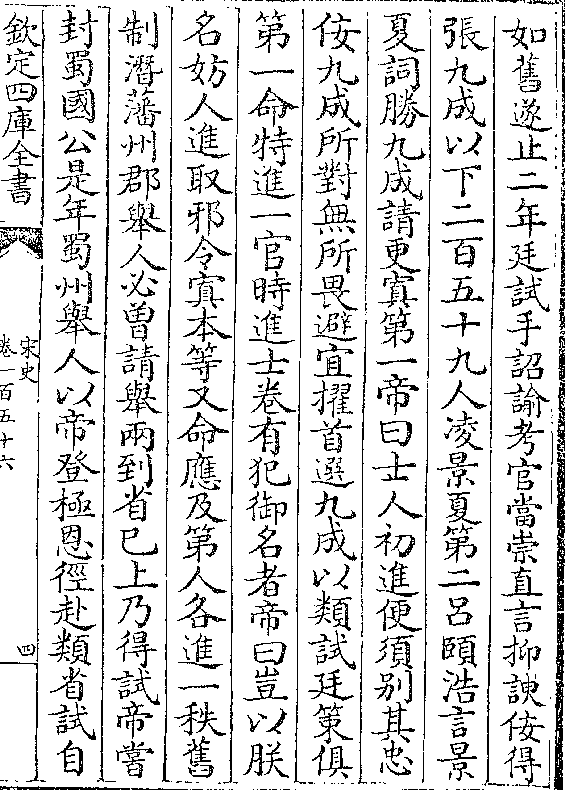 如舊遂止二年廷試手詔諭考官當崇直言抑諛佞得
張九成以下二百五十九人凌景夏第二呂頤浩言景
夏詞勝九成請更寘第一帝曰士人初進便須別其忠
佞九成所對無所畏避宜擢首選九成以類試廷策俱
第一命特進一官時進士卷有犯御名者帝曰豈以朕
名妨人進取邪令寘本等又命應及第人各進一秩舊
制潛藩州郡舉人必曾請舉兩到省已上乃得試帝嘗
封蜀國公是年蜀州舉人以帝登極恩徑赴類省試自
欽定四庫全書
宋史
卷一百五十六
四